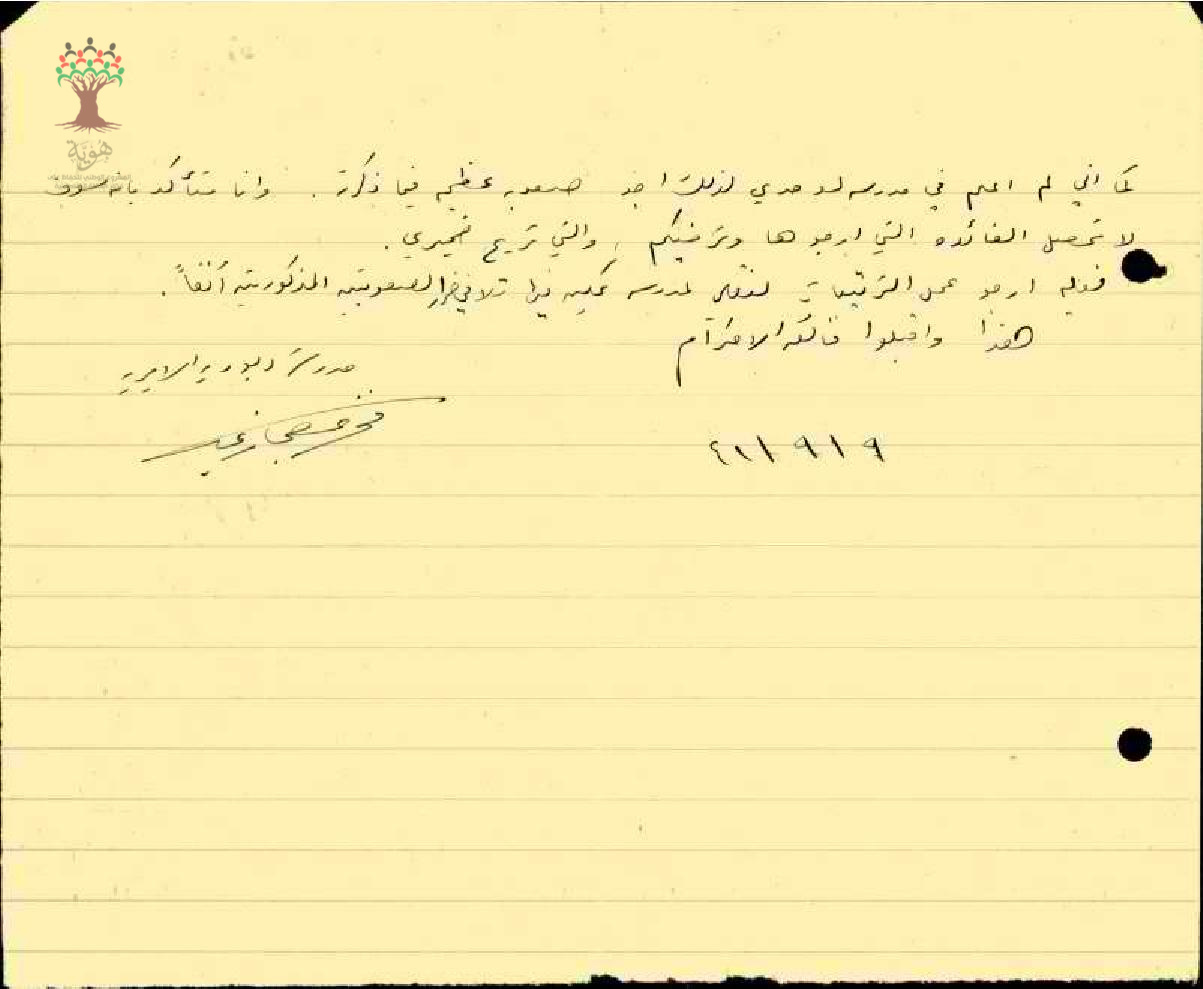 هوية
كما اني لم اعلم في مدرسه لوحدي لذلك اجد صعوبه عظيمه فيما ذكرته . وانا متأكد بانه سوف
لا تحصل الفائده التي ارجوها وترضيكم , والتي تريح ضميري .
فعليه ارجو عمل الترتيبات لنقلي لمدرسه يمكن فيها تلافي الصعوبتين المذكورتين أنفاً .
هذا واقبلوا فائق الاحترام
مدرسة الاميريه
٩ / ٩ / ٤٢١